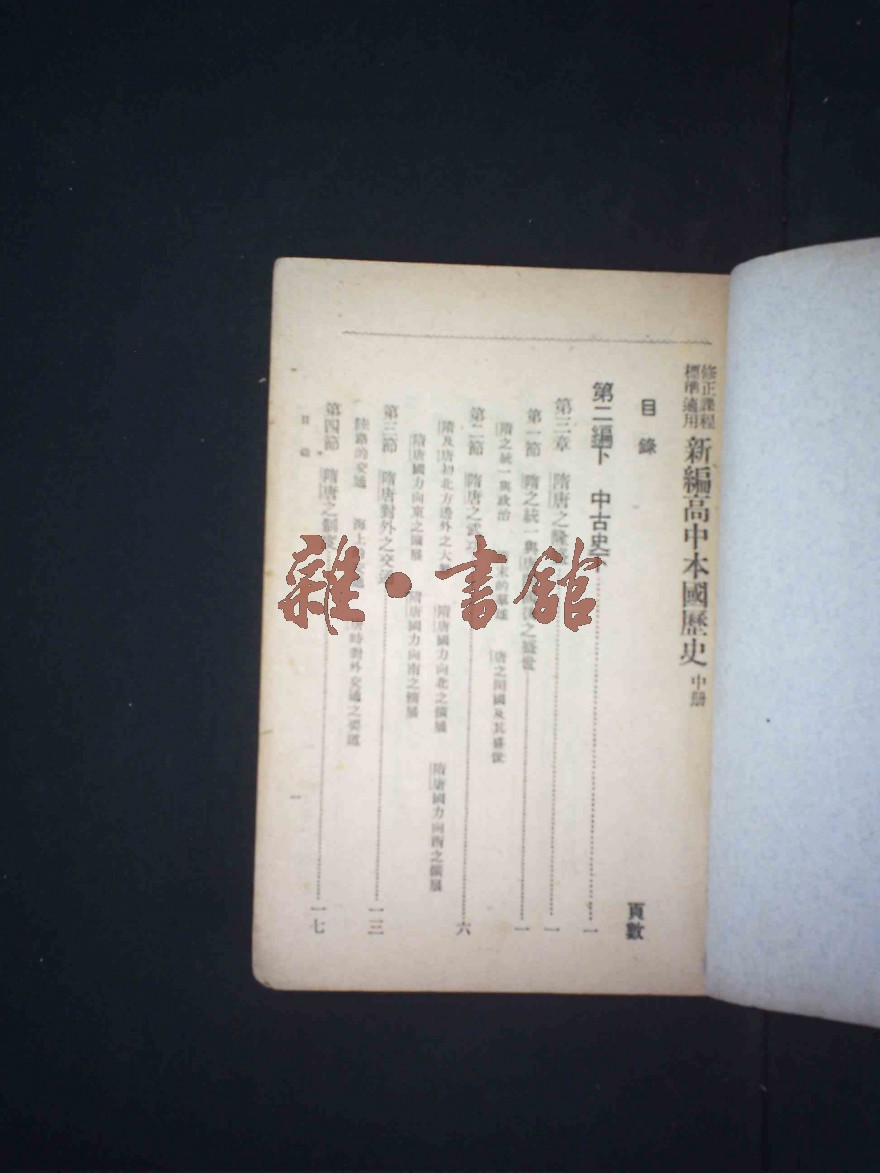 修正課程
標準適用
新編高中本國歷史 中冊
目錄
頁數
第二編下 中古史下 一
第三章 隋唐之隆盛 一
第一節 隋之統一與唐 之盛世 一
隋之統一與政治 末的羣雄 唐之開國及其盛世
第二節 隋唐之武功 六
隋及唐初北方邊外之大勢 隋唐國力向北之擴展 隋唐國力向西之擴展
隋唐國力向東之擴展 隋唐國力向南之擴展
第三節 隋唐對外之交通 一三
陸路的交通 海上的交通 唐時對外交通之要道
第四節 隋唐之制度 一七
目錄
一
雜·書館